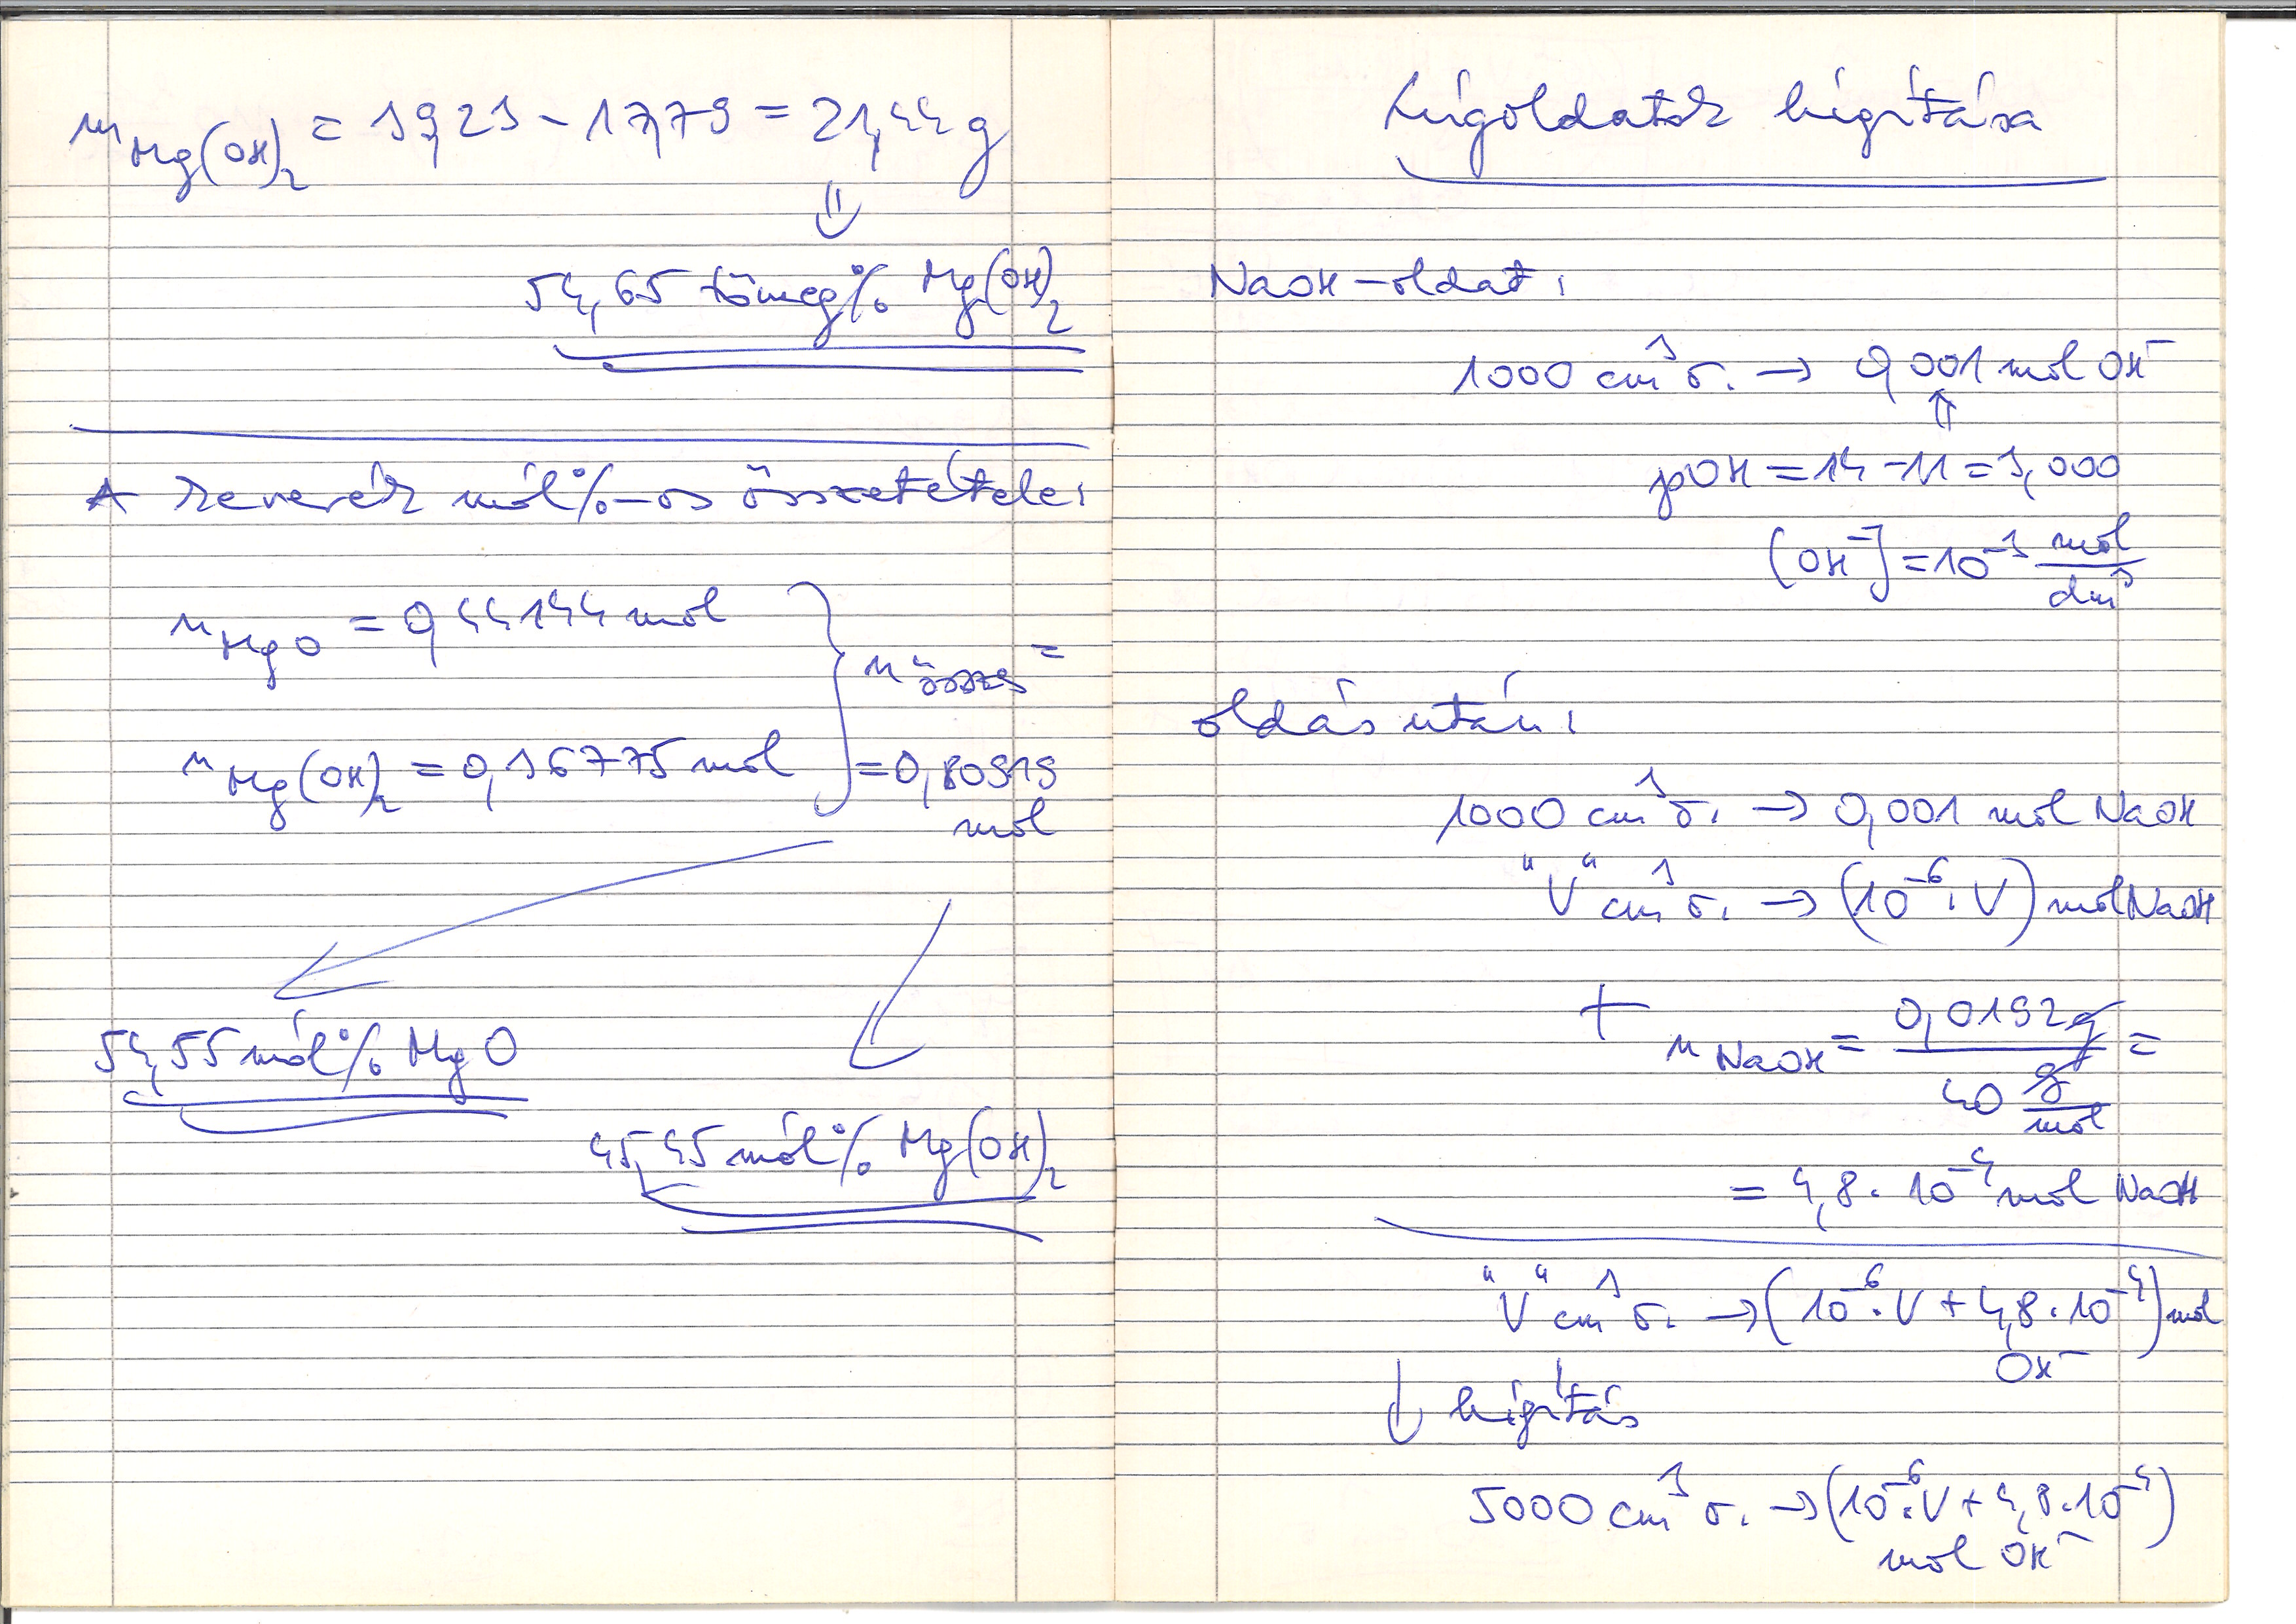 m Mg(OH)₂ = 39,23 - 17,79 = 21,44 g
⇓
54,65 tömeg% Mg(OH)₂
A keverék mól%-os összetétele:
n MgO = 0,44144 mol
n összes =
n Mg(OH)₂ = 0,36775 mol
= 0,80919
mol
54,55 mól% MgO
45,45 mól% Mg(OH)₂
Lúgoldatok hígítása
NaOH-oldat:
1000 cm³ o. → 0,001 mol OH⁻
⇑
pOH = 14 - 11 = 3,000
[OH⁻] = 10⁻³ mol/dm³
oldás után:
1000 cm³ o. → 0,001 mol NaOH
"V" cm³ o. → (10⁻⁶·V) mol NaOH
+ n NaOH = 0,0192 g / 40 g/mol =
= 4,8·10⁻⁴ mol NaOH
"V" cm³ o. → (10⁻⁶·V + 4,8·10⁻⁴) mol
OH⁻
↓ hígítás
5000 cm³ o. → (10⁻⁶·V + 4,8·10⁻⁴)
mol OH⁻